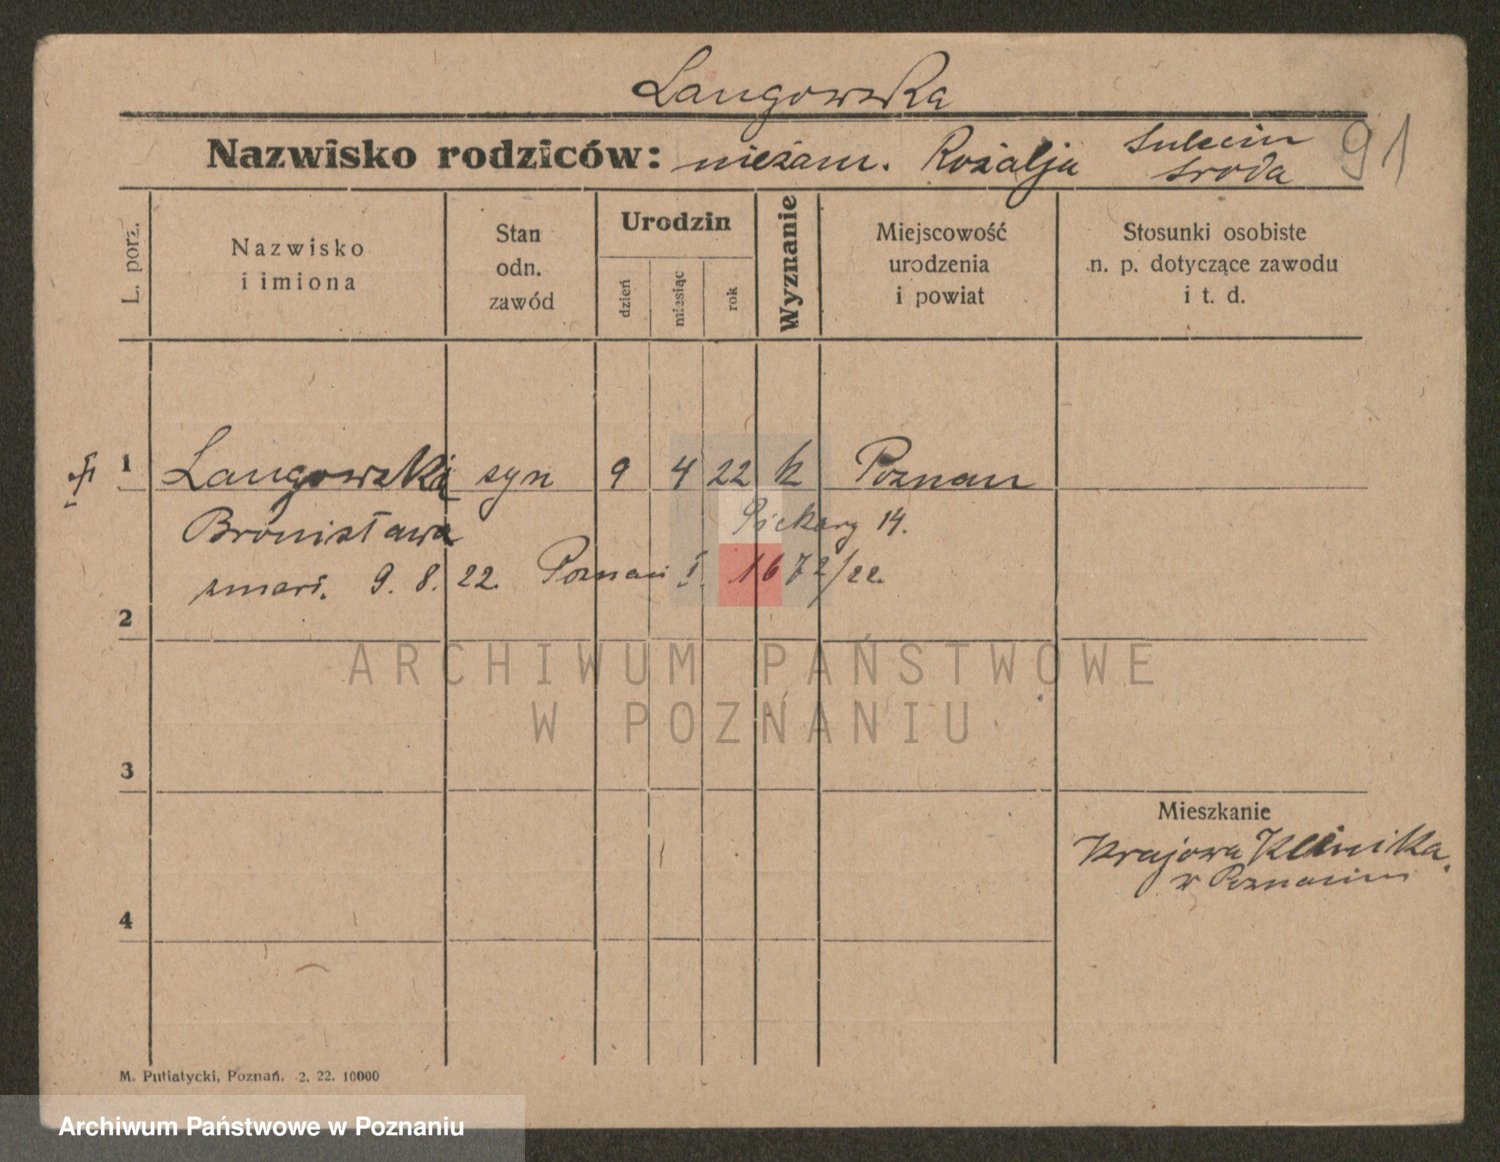 Langowska
Nazwisko rodziców: nieżam. Rozalja Sulęcin
Środa
91
L. porz.
Nazwisko
i imiona
Stan
odn.
zawód
Urodzin
dzień
miesiąc
rok
Wyznanie
Miejscowość
urodzenia
i powiat
Stosunki osobiste
n. p. dotyczące zawodu
i t. d.
1 Langowski syn 9 4 22 k Poznań
Bronisława Piekary 14.
zmarł. 9. 8. 22. Poznań I. 1672/22.
2
ARCHIWUM PAŃSTWOWE
W POZNANIU
3
Mieszkanie
Krajowa Klinika
w Poznaniu
4
M. Putiatycki, Poznań. 2. 22. 10000
Archiwum Państwowe w Poznaniu